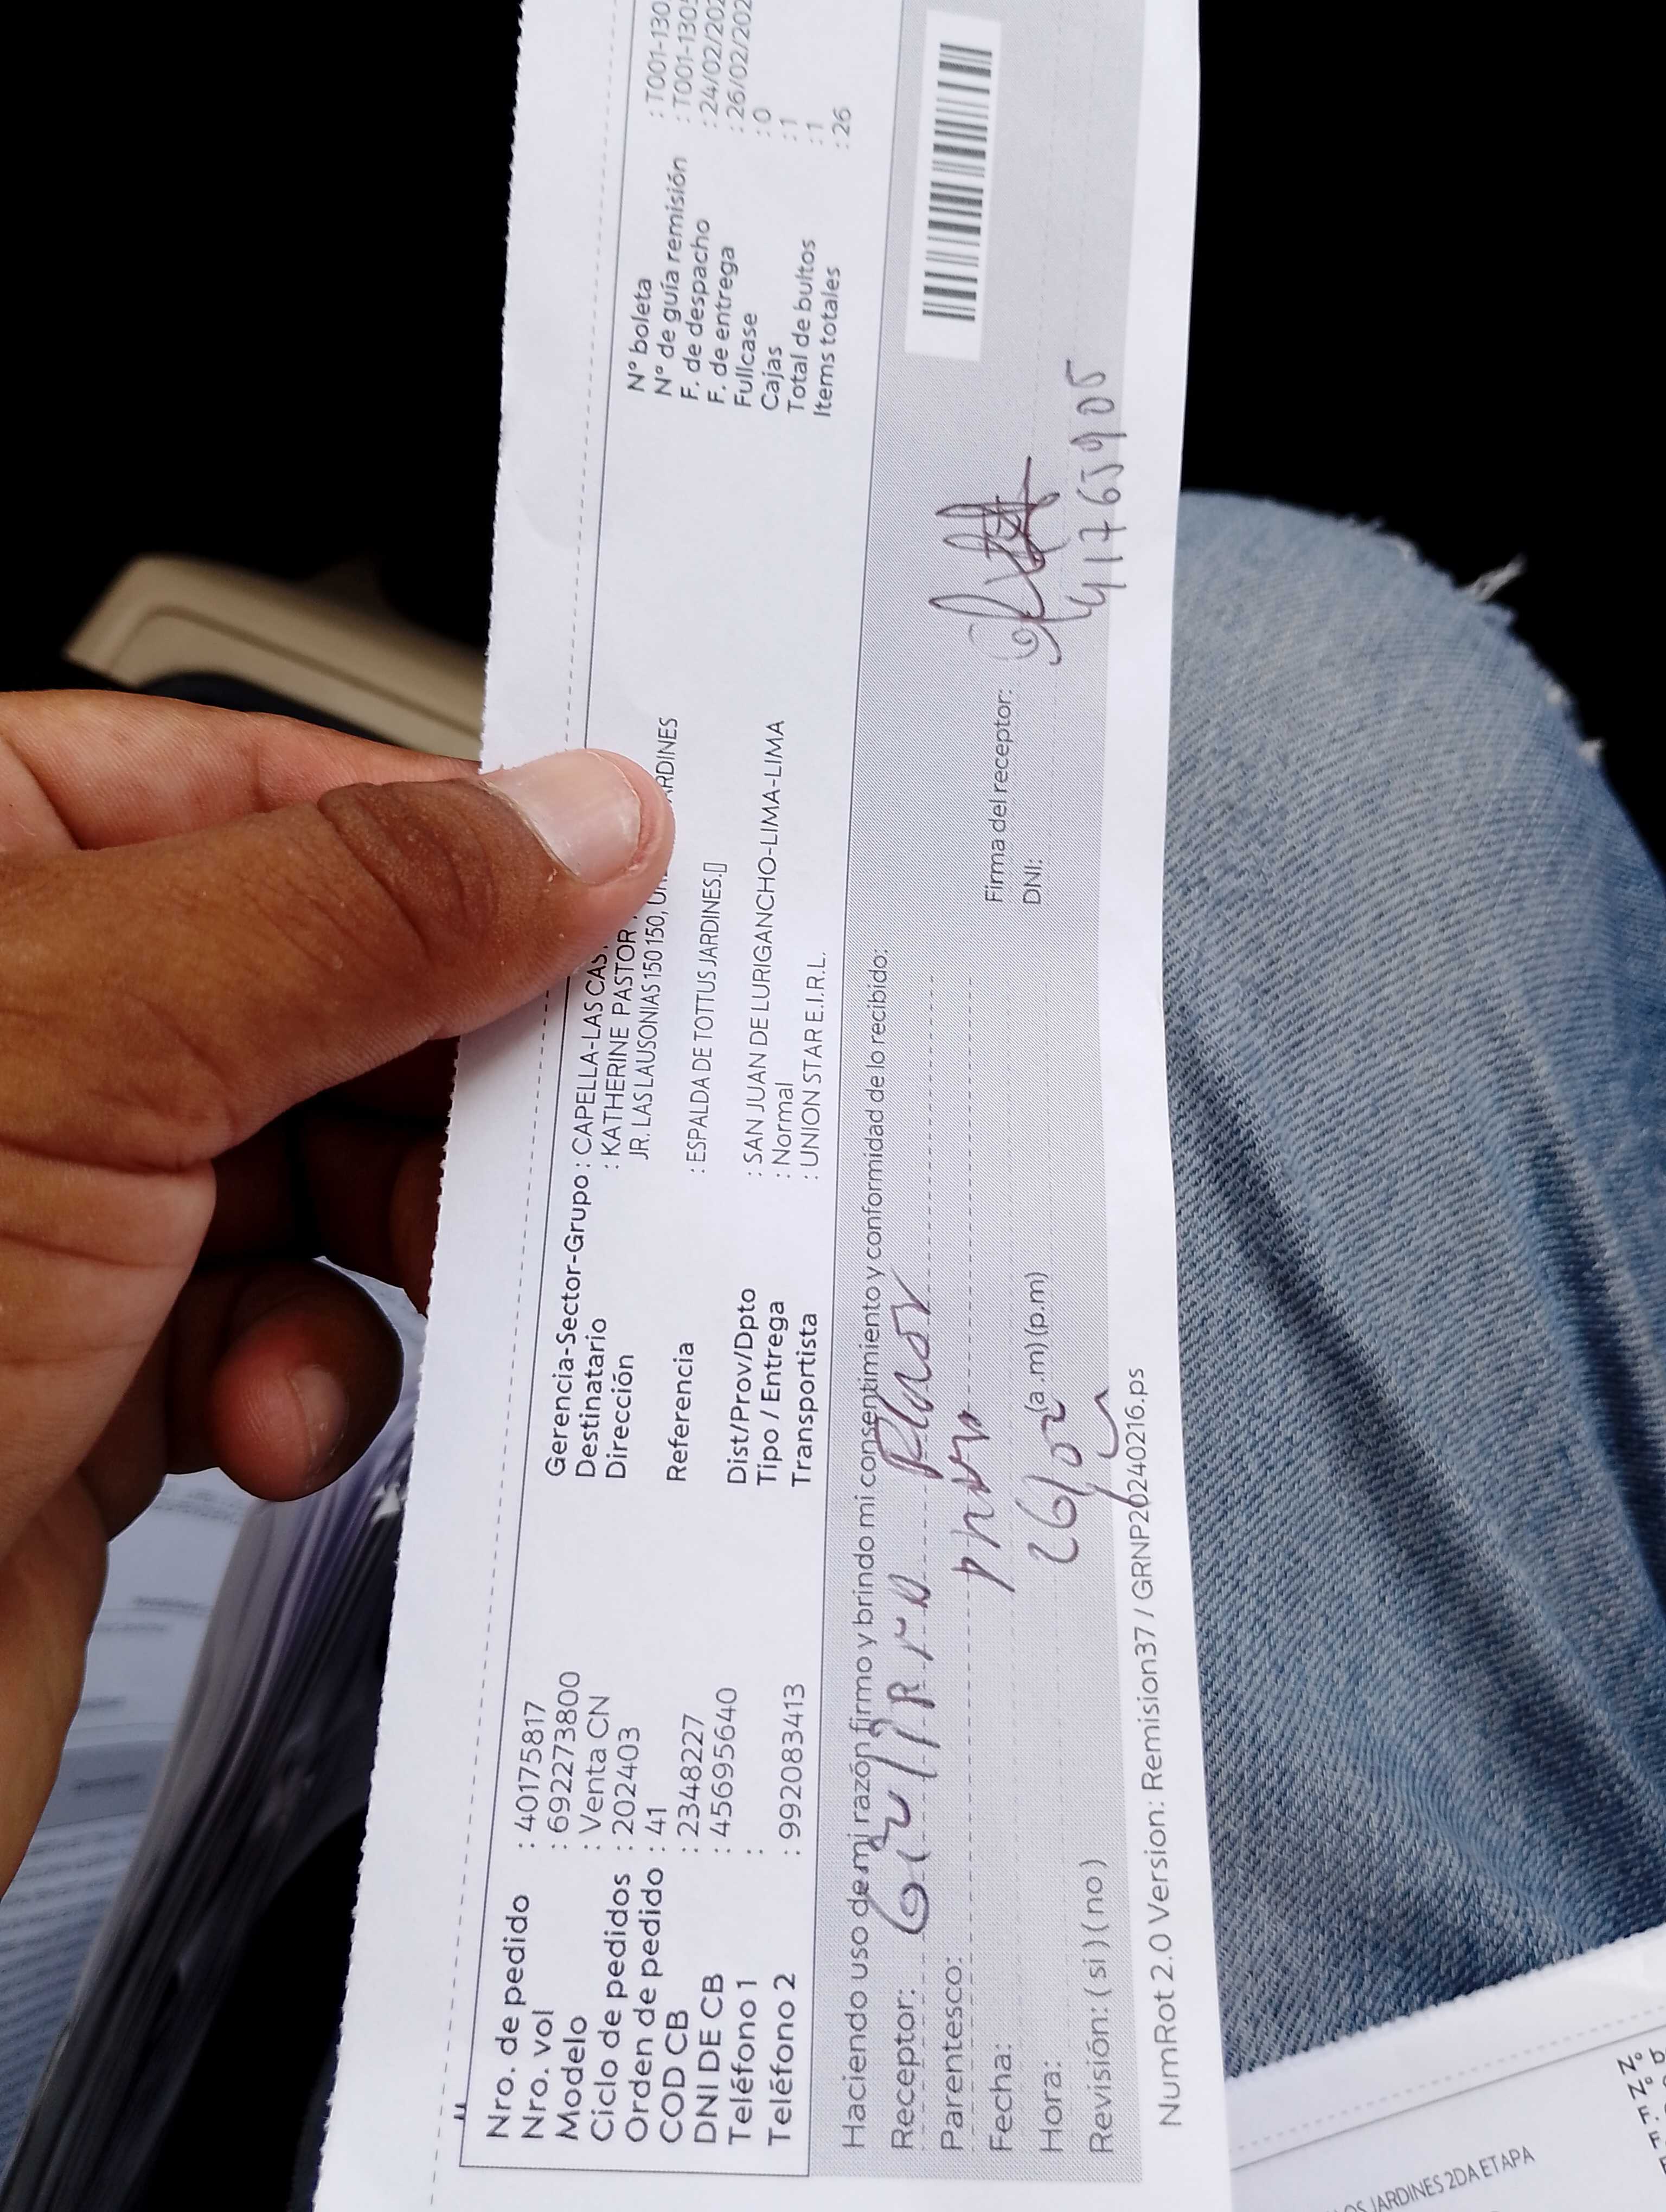 Nro. de pedido : 40175817
Nro. vol : 692273800
Modelo : Venta CN
Ciclo de pedidos : 202403
Orden de pedido : 41
COD CB : 2348227
DNI DE CB : 45695640
Teléfono 1 :
Teléfono 2 : 992083413
Gerencia-Sector-Grupo : CAPELLA-LAS CAS
Destinatario : KATHERINE PASTOR
Dirección JR. LAS LAUSONIAS 150 150, ARDINES
Referencia : ESPALDA DE TOTTUS JARDINES.
Dist/Prov/Dpto : SAN JUAN DE LURIGANCHO-LIMA-LIMA
Tipo / Entrega : Normal
Transportista : UNION STAR E.I.R.L.
N° boleta : T001-130
N° de guía remisión : T001-130
F. de despacho : 24/02/202
F. de entrega : 26/02/202
Fullcase : 0
Cajas : 1
Total de bultos : 1
Items totales : 26
Haciendo uso de mi razón firmo y brindo mi consentimiento y conformidad de lo recibido:
Receptor:
Parentesco:
Fecha: 26/02
Hora: (a.m) (p.m)
Revisión: ( si ) ( no )
Firma del receptor:
DNI: 41765905
NumRot 2.0 Version: Remision37 / GRNP20240216.ps
OS JARDINES 2DA ETAPA
N° b
N°
F.
F.